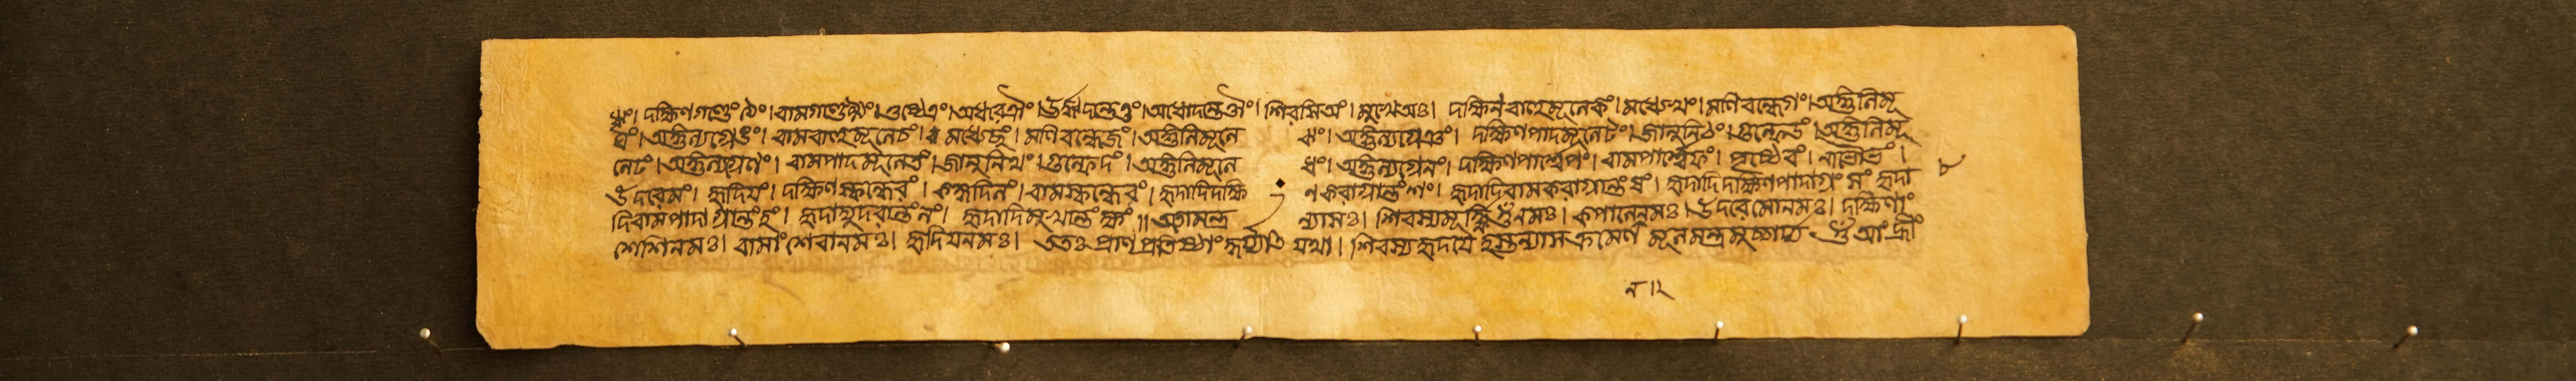 ॠং। দক্ষিণগণ্ডেঌং। বামগণ্ডেৡং। ওষ্ঠেএং। অধরেঐং। ঊর্দ্ধদন্তেওং। অধোদন্তেঔং। শিরসিঅং। মুখেঅঃ। দক্ষিণবাহুমূলেকং। মধ্যেখং। মণিবন্ধেগং। অঙ্গুলিমূ
ঘং। অঙ্গুল্যগ্রেঙং। বামবাহুমূলেচং। মধ্যেছং। মণিবন্ধেজং। অঙ্গুলিমূলে ঝং। অঙ্গুল্যগ্রেঞং। দক্ষিণপাদমূলেটং। জানুনিঠং। গুল্ফেডং। অঙ্গুলিমূ
লেঢং। অঙ্গুল্যগ্রেণং। বামপাদমূলেতং। জানুনিথং। গুল্ফেদং। অঙ্গুলিমূলে ধং। অঙ্গুল্যগ্রেনং। দক্ষিণপার্শ্বেপং। বামপার্শ্বেফং। পৃষ্ঠেবং। নাভৌভং।
উদরেমং। হৃদিযং। দক্ষিণস্কন্ধেরং। ককুদিলং। বামস্কন্ধেবং। হৃদাদিদক্ষি ণকরাগ্রান্তংশং। হৃদাদিবামকরাগ্রান্তংষং। হৃদাদিদক্ষিণপাদাগ্রংসং হৃদা
দিবামপাদাগ্রান্তংহং। হৃদাদ্যুদরান্তংলং। হৃদাদিমুখান্তংক্ষং॥ ন্যাসঃ। শিবস্যমূর্দ্ধ্নি নমঃ। কপালেনমঃ। উদরে নমঃ। দক্ষিণাং
শেশিনমঃ। বামাংশেবানমঃ। হৃদিযনমঃ। ততঃ প্রাণপ্রতিষ্ঠাং কুর্য্যাৎ যথা। শিবস্য হৃদয়ে হস্তন্যাসক্রমেণ মূলমন্ত্রমুচ্চার্য্য ওঁ আং হ্রীং
৮